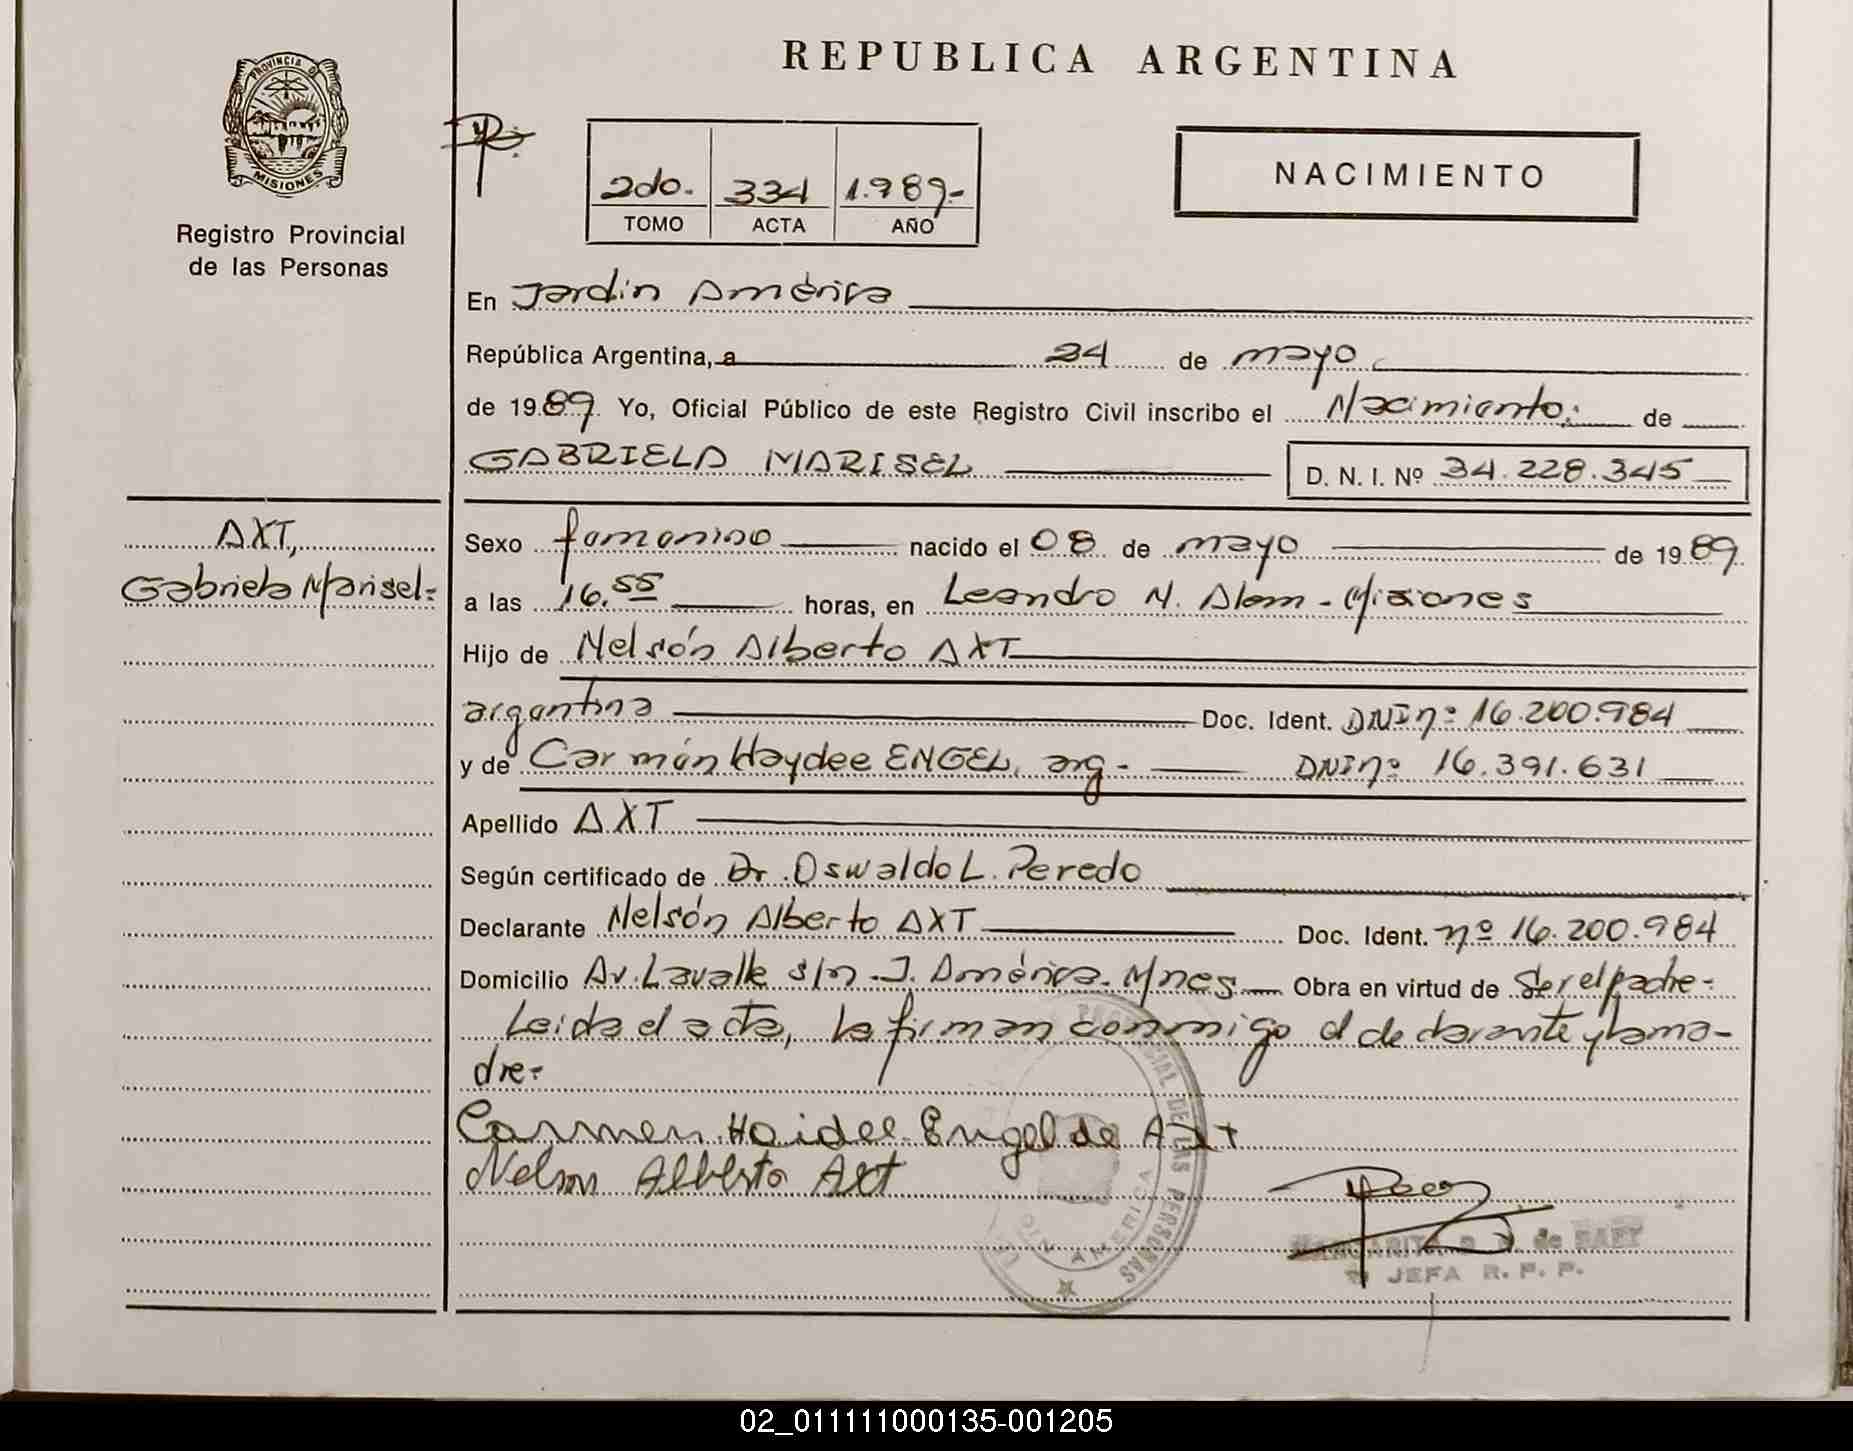 REPUBLICA ARGENTINA
PROVINCIA D
MISIONES
Registro Provincial
de las Personas
2do. 334 1.989-
TOMO ACTA AÑO
NACIMIENTO
En Jardin América
República Argentina, a 24 de mayo
de 1989 Yo, Oficial Público de este Registro Civil inscribo el Nacimiento: de
GABRIELA MARISEL D. N. I. Nº 34.228.345
AXT,
Gabriela Marisel-
Sexo femenino nacido el 08 de mayo de 1989
a las 16.55 horas, en Leandro N. Alem - Misiones
Hijo de Nelsón Alberto AXT
argentina Doc. Ident. DNI nº 16.200.984
y de Carmén Haydee ENGEL, arg- DNI nº 16.391.631
Apellido AXT
Según certificado de Dr. Oswaldo L. Peredo
Declarante Nelsón Alberto AXT Doc. Ident. nº 16.200.984
Domicilio Av. Lavalle s/n - J. América - Mnes Obra en virtud de Ser el padre-
Leida el acta, la firman conmigo el declarante y la ma-
dre-
Carmen Haidee Engel de Axt
Nelson Alberto Axt
PROVINCIAL DE LAS PERSONAS
AMERICA
JEFA R. P. P.
02_011111000135-001205